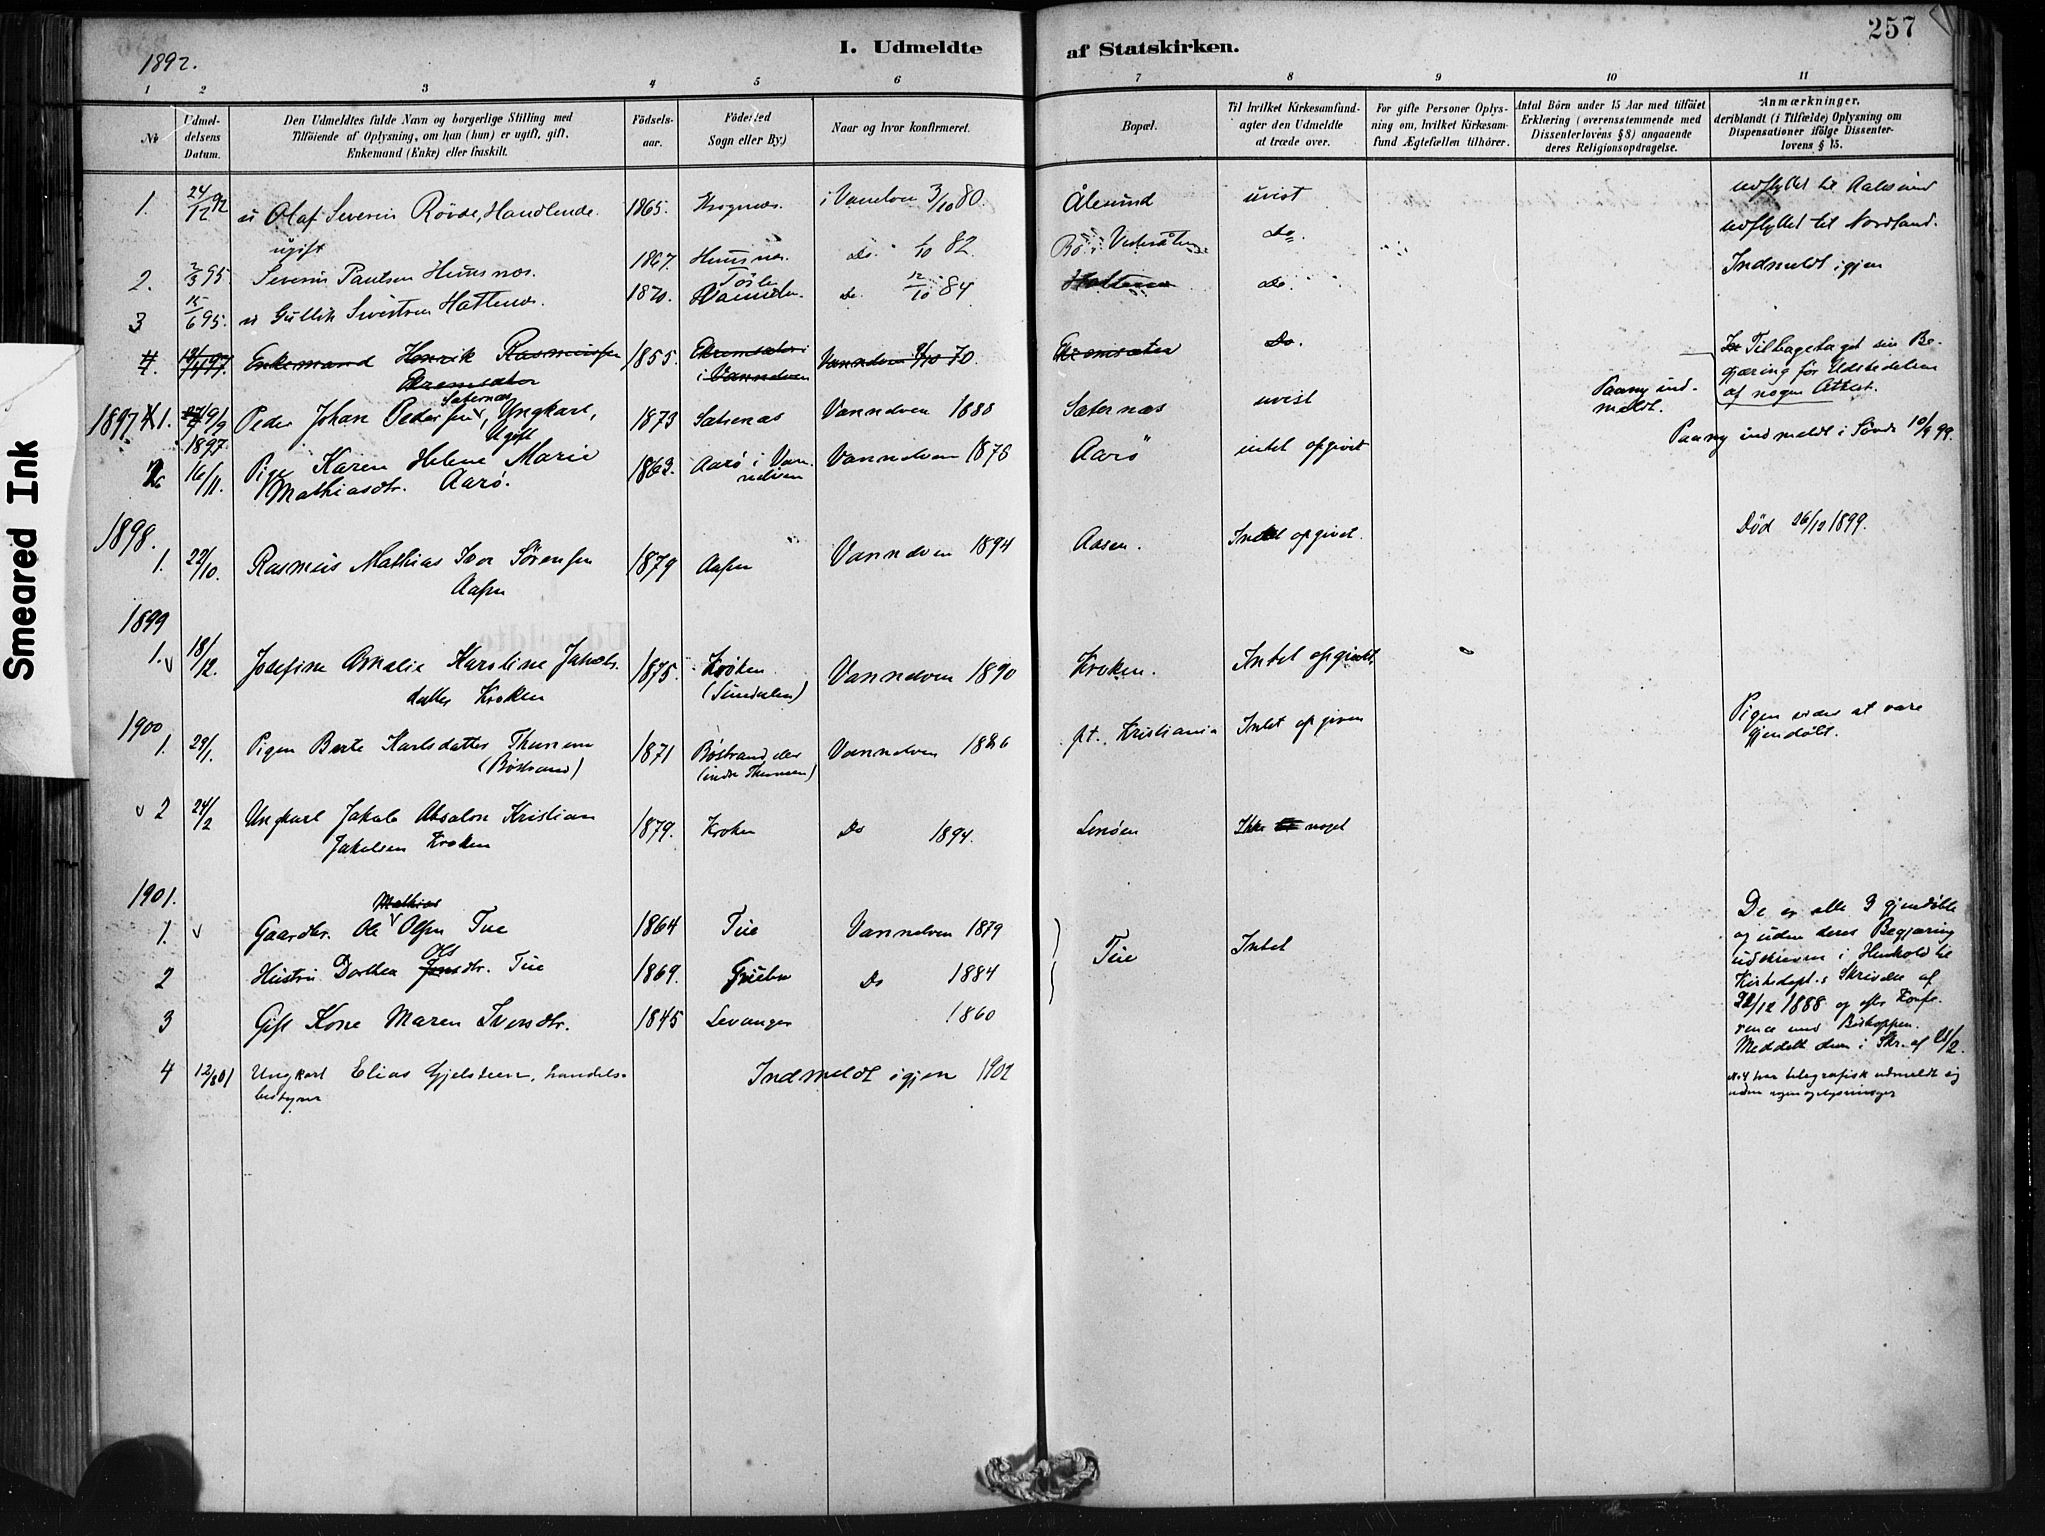 257
1892.
I. Udmeldte af Statskirken.
1 2 3 4 5 6 7 8 9 10 11
No
Udmel-
delsens
Datum.
Den Udmeldtes fulde Navn og borgerlige Stilling med
Tilföiende af Oplysning, om han (hun) er ugift, gift,
Enkemand (Enke) eller fraskilt.
Födsels-
aar.
Födested
Sogn eller By.)
Naar og hvor konfirmeret.
Bopæl.
Til hvilket Kirkesamfund-
agter den Udmeldte
at træde over.
For gifte Personer Oplys-
ning om, hvilket Kirkesam-
fund Ægtefællen tilhörer.
Antal Börn under 15 Aar med tilföiet
Erklæring (overensstemmende med
Dissenterlovens § 8) angaaende
deres Religionsopdragelse.
Anmærkninger,
deriblandt (i Tilfælde) Oplysning om
Dispensationer ifölge Dissenter-
lovens § 15.
1. 24/12 92 Olaf Severin Rövde, Handlende 1865. i Vanelven 3/10 80. Ålesund uvist udflyttet til Aalesund
ugift
2. 2/3 95 Severin Paulsen Huusnes. 1867. Huusnes. Do. 82. Do. udflyttet til Nordland.
3 15/6 95. Gullik Sivertsen Hattenes. 1870. Do. 12/10 84 Do. Indmeldt igjen
4. Enkemand Henrik Rasmussen 1855. Vannelven 70. Do. Tilbagetaget sin Be-
gjæring før Udstedelsen
af nogen Attest.
1897 1. 19/9 Peder Johan Pedersen Sæternæs, Ungkarl, 1873 Sætrenæs Vannelven 1888 Sæternæs uvist Paany ind-
meldt.
Ugift
1897.
2 16/11. Pige Karen Helene Marie 1863. Aarö i Van- Vannelven 1878 Aarö intet opgivet Paany indmeldt i Søvde 10/9 99.
Mathiasdtr. Aarø. nelven
1898.
1. 22/10. Rasmus Mathias Ivar Sörensen 1879 Aasen Vannelven 1894 Aasen. Intet opgivet. Död 26/10 1899.
Aasen
1899
1. 18/12. Josefine Amalie Karoline Jakobs- 1875. Kroken Vannelven 1890 Kroken. Intet opgivet.
datter Kroken (Sundalen)
1900
1. 29/1. Pigen Berte Karlsdatter Thunem 1871 Böstranden Vannelven 1886 pt. Kristiania Intet opgiven Pigen siden at være
gjendöbt.
(Böstrand) (indre Thunem)
2 24/2 Ungkarl Jakob Absalon Kristian 1879. Kroken Do 1894. Ikke noget
Jakobsen Kroken
1901.
1. Gaardbr. Ole Mathias Olsen Tue 1864 Tue Vannelven 1879 Tue Intet
2 Hustru Dorthea Olsdtr. Tue 1869. Do 1884
3 Gift Kone Maren Iversdtr. 1845 Levanger 1860
De er alle 3 gjendöbte
og uden deres Begjæring
udskreven i Henhold til
Kirkedept.s Skrivelse af
22/12 1888 og efter Konfe-
rence med Biskoppen.
Meddelt dem i Skr. af 21/2.
4 12/8 01 Ungkarl Elias Gjelsteen, handels- Indmeldt igjen 1902
bestyrer
No 4 har telegrafisk udmeldt sig
uden nogen oplysninger
Smeared Ink